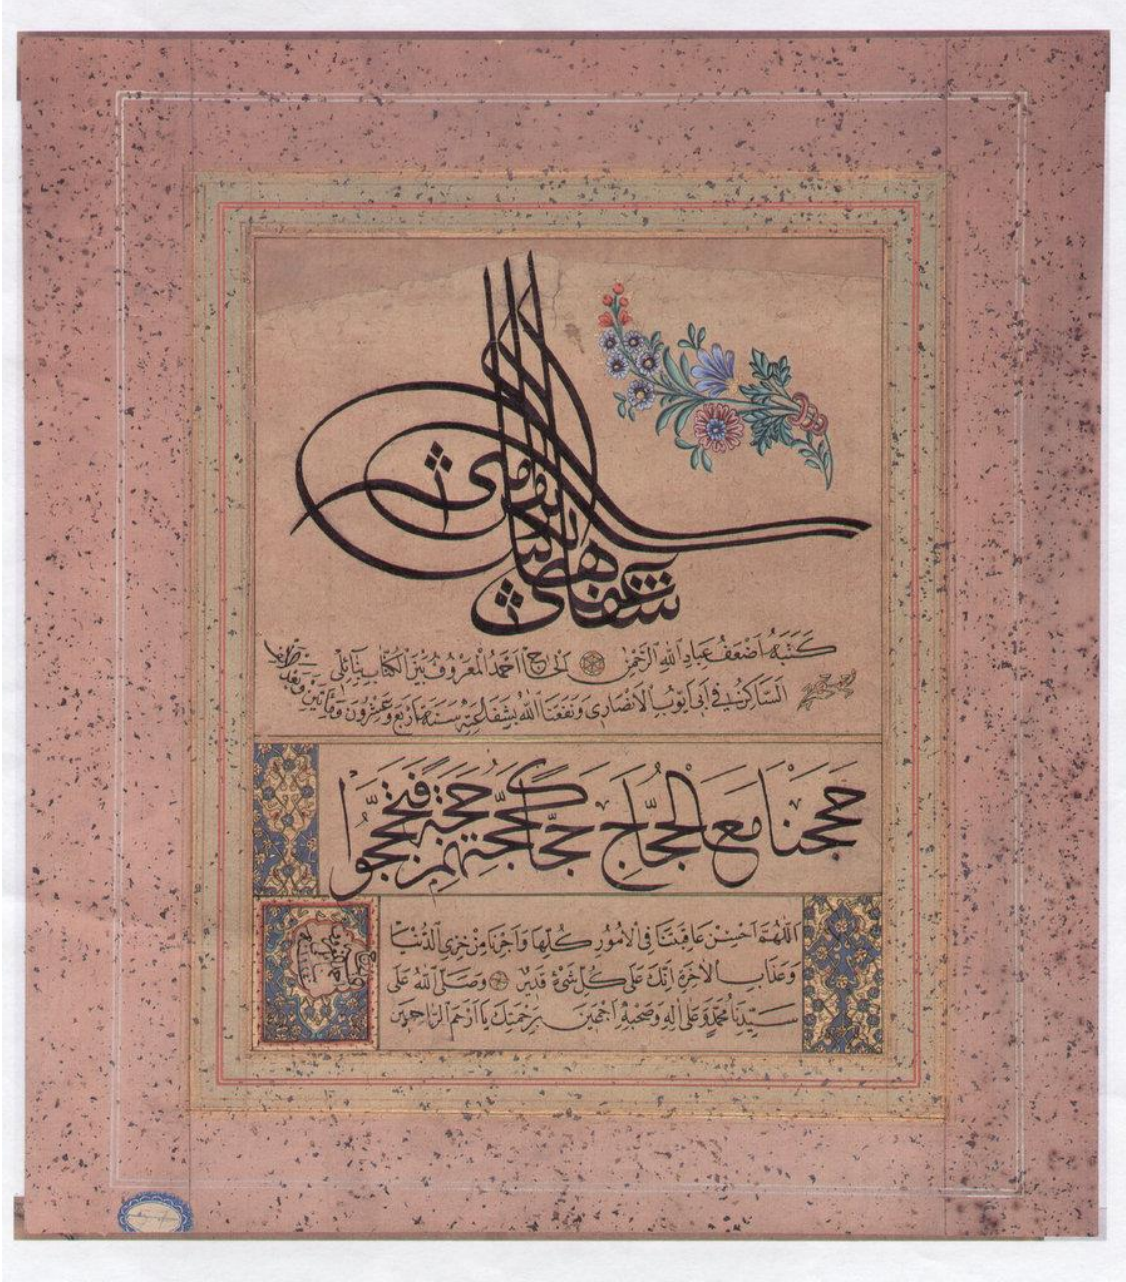 شفاعتى لاهل الكبائر من امتى
كَتَبَهُ اَضْعَفُ عِبَادِ اللهِ الرَّحْمٰنِ الحَاجّ اَحْمَدُ المَعْرُوفُ بَيْنَ الكُتَّابِ بِنَائِلِى
السَّاكِنُ فِى اَبِى اَيُّوبِ الاَنْصَارِى وَنَفَعَنَا اللهُ بِشَفَاعَتِهِ سَنَه اَرْبَع وَعِشْرُونَ وَمِأَتَيْنِ وَاَلف
حَجَجْنَا مَعَ الْحُجَّاجِ حَجًّا كَحَجَّتِهِمْ
اَللّٰهُمَّ اَحْسِنْ عَاقِبَتَنَا فِى الْاُمُورِ كُلِّهَا وَاَجِرْنَا مِنْ خِزْىِ الدُّنْيَا
وَعَذَابِ الْاٰخِرَةِ اِنَّكَ عَلٰى كُلِّ شَىْءٍ قَدِيرٌ وَصَلَّى اللهُ عَلٰى
سَيِّدِنَا مُحَمَّدٍ وَعَلٰى اٰلِهِ وَصَحْبِهِ اَجْمَعِينَ بِرَحْمَتِكَ يَا اَرْحَمَ الرَّاحِمِينَ